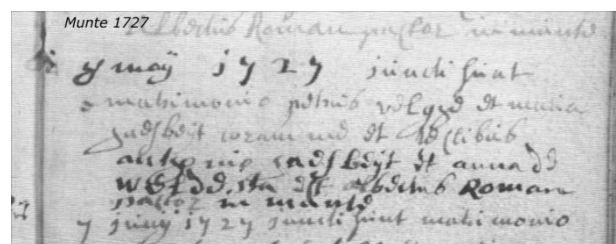 Munte 1727
Albertus Roman pastor in munte
9 may 1727 juncti sunt
matrimonio petrus velgge et maria
gadsbeijt coram me et testibus
antonio gadsbeijt et anna de
ita est albertus Roman
pastor in munte
7 junij 1727 juncti sunt matrimonio